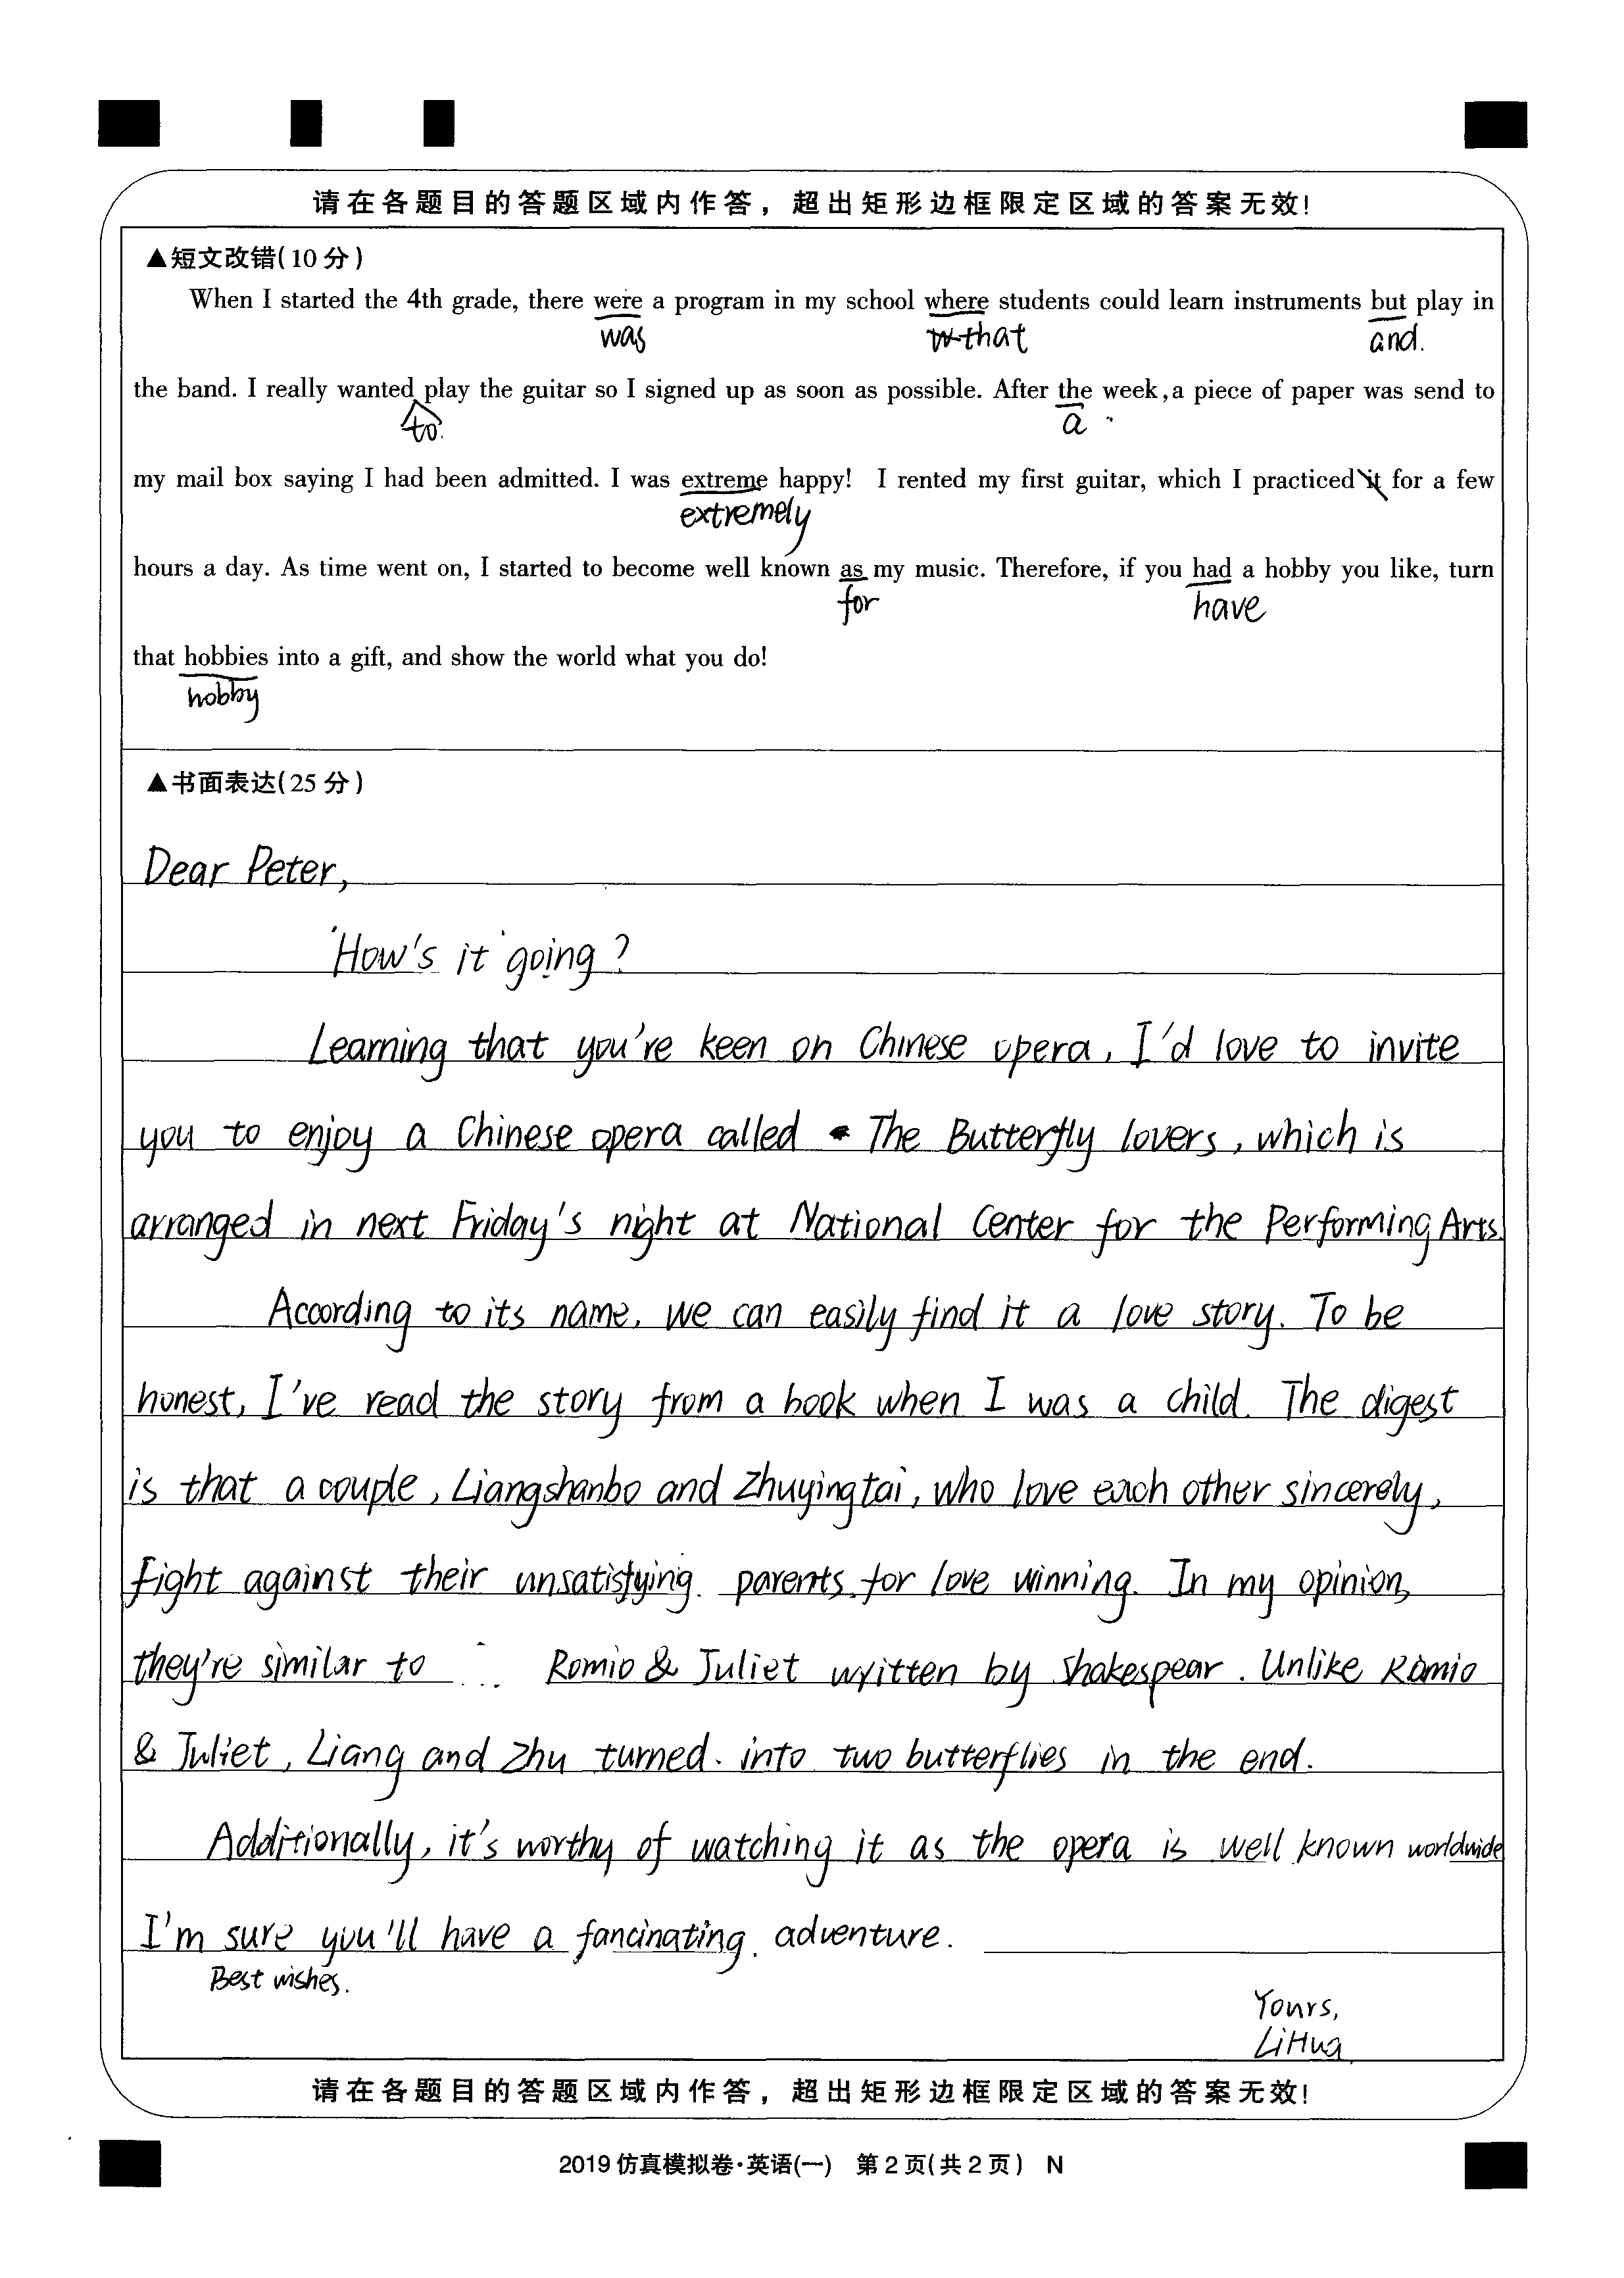 请在各题目的答题区域内作答，超出矩形边框限定区域的答案无效!
▲短文改错(10分)
When I started the 4th grade, there were a program in my school where students could learn instruments but play in
was that and.
the band. I really wanted play the guitar so I signed up as soon as possible. After the week, a piece of paper was send to
to. a
my mail box saying I had been admitted. I was extreme happy! I rented my first guitar, which I practiced it for a few
extremely
hours a day. As time went on, I started to become well known as my music. Therefore, if you had a hobby you like, turn
for have
that hobbies into a gift, and show the world what you do!
hobby
▲书面表达(25分)
Dear Peter,
How's it going?
Learning that you're keen on Chinese opera, I'd love to invite
you to enjoy a Chinese opera called The Butterfly lovers, which is
arranged in next Friday's night at National Center for the Performing Arts.
According to its name, we can easily find it a love story. To be
honest, I've read the story from a book when I was a child. The digest
is that a couple, Liangshanbo and Zhuyingtai, who love each other sincerely,
fight against their unsatisfying parents for love winning. In my opinion,
they're similar to Romio & Juliet written by Shakespear. Unlike Romio
& Juliet, Liang and Zhu turned into two butterflies in the end.
Additionally, it's worthy of watching it as the opera is well known worldwide
I'm sure you'll have a fancinating adventure.
Best wishes.
Yours,
LiHua
请在各题目的答题区域内作答，超出矩形边框限定区域的答案无效!
2019仿真模拟卷·英语(一) 第2页(共2页) N